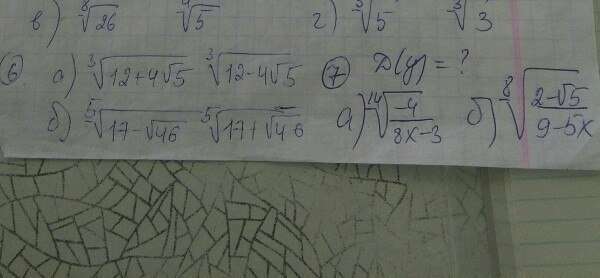 в) ⁸√26 ⁴√5 г) ³√5 ³√3
⑥ а) ³√(12+4√5) ³√(12-4√5) ⑦ D(y)=?
б) ⁵√(17-√46) ⁵√(17+√46) а) ¹⁴√(-4/(8x-3)) б) ⁸√((2-√5)/(9-5x))